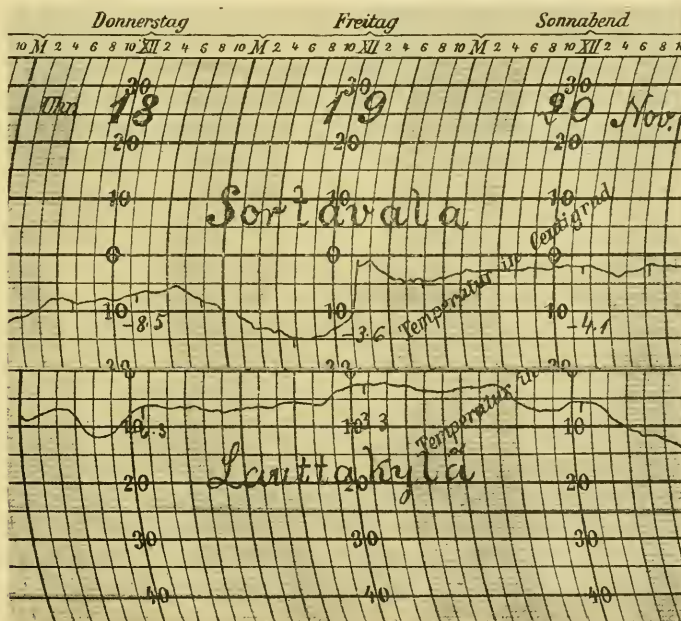 Donnerstag Freitag Sonnabend
10 M 2 4 6 8 10 XII 2 4 6 8 10 M 2 4 6 8 10 XII 2 4 6 8 10 M 2 4 6 8 10 XII 2 4 6 8 10
30 30 30
Uhr 18 19 20 Nov.
20 20 20
10 10 10
Sortavala
0 0 0
Temperatur in Centigrad
10 10 10
-8.5 -3.6 -4.1
20 20 20
0 0 0
Temperatur in
10 10 10
Lauttakylä
20 20 20
30 30 30
40 40 40